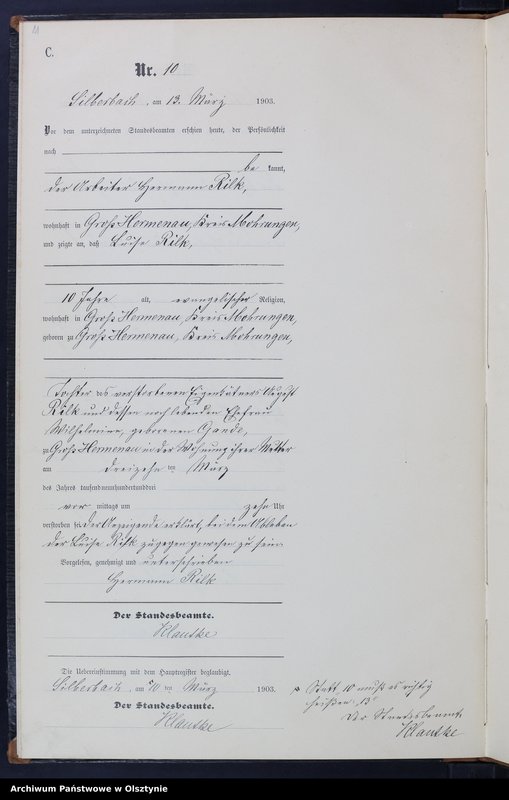 11
C.
Nr. 10
Silberbach, am 13. März 1903.
Vor dem unterzeichneten Standesbeamten erschien heute, der Persönlichkeit
nach
be kannt,
der Arbeiter Hermann Rilk,
wohnhaft in Groß Hermenau, Kreis Mohrungen,
und zeigte an, daß Luise Rilk,
10 Jahre alt, evangelischer Religion,
wohnhaft in Groß Hermenau, Kreis Mohrungen,
geboren zu Groß Hermenau, Kreis Mohrungen,
Tochter des verstorbenen Eigenkätners August
Rilk und dessen noch lebenden Ehefrau
Wilhelmine, geborenen Gande,
zu Groß Hermenau in der Wohnung ihrer Mutter
am dreizehn ten März
des Jahres tausendneunhundertunddrei
vor mittags um zehn Uhr
verstorben sei. Der Anzeigende erklärt, bei dem Ableben
der Luise Rilk zugegen gewesen zu sein.
Vorgelesen, genehmigt und unterschrieben
Hermann Rilk
Der Standesbeamte.
Klautke
Die Uebereinstimmung mit dem Hauptregister beglaubigt.
Silberbach, am 10 ten März 1903.
Der Standesbeamte.
Klautke
Statt 10 muß es richtig
heißen: 13
Der Standesbeamte
Klautke
Archiwum Państwowe w Olsztynie